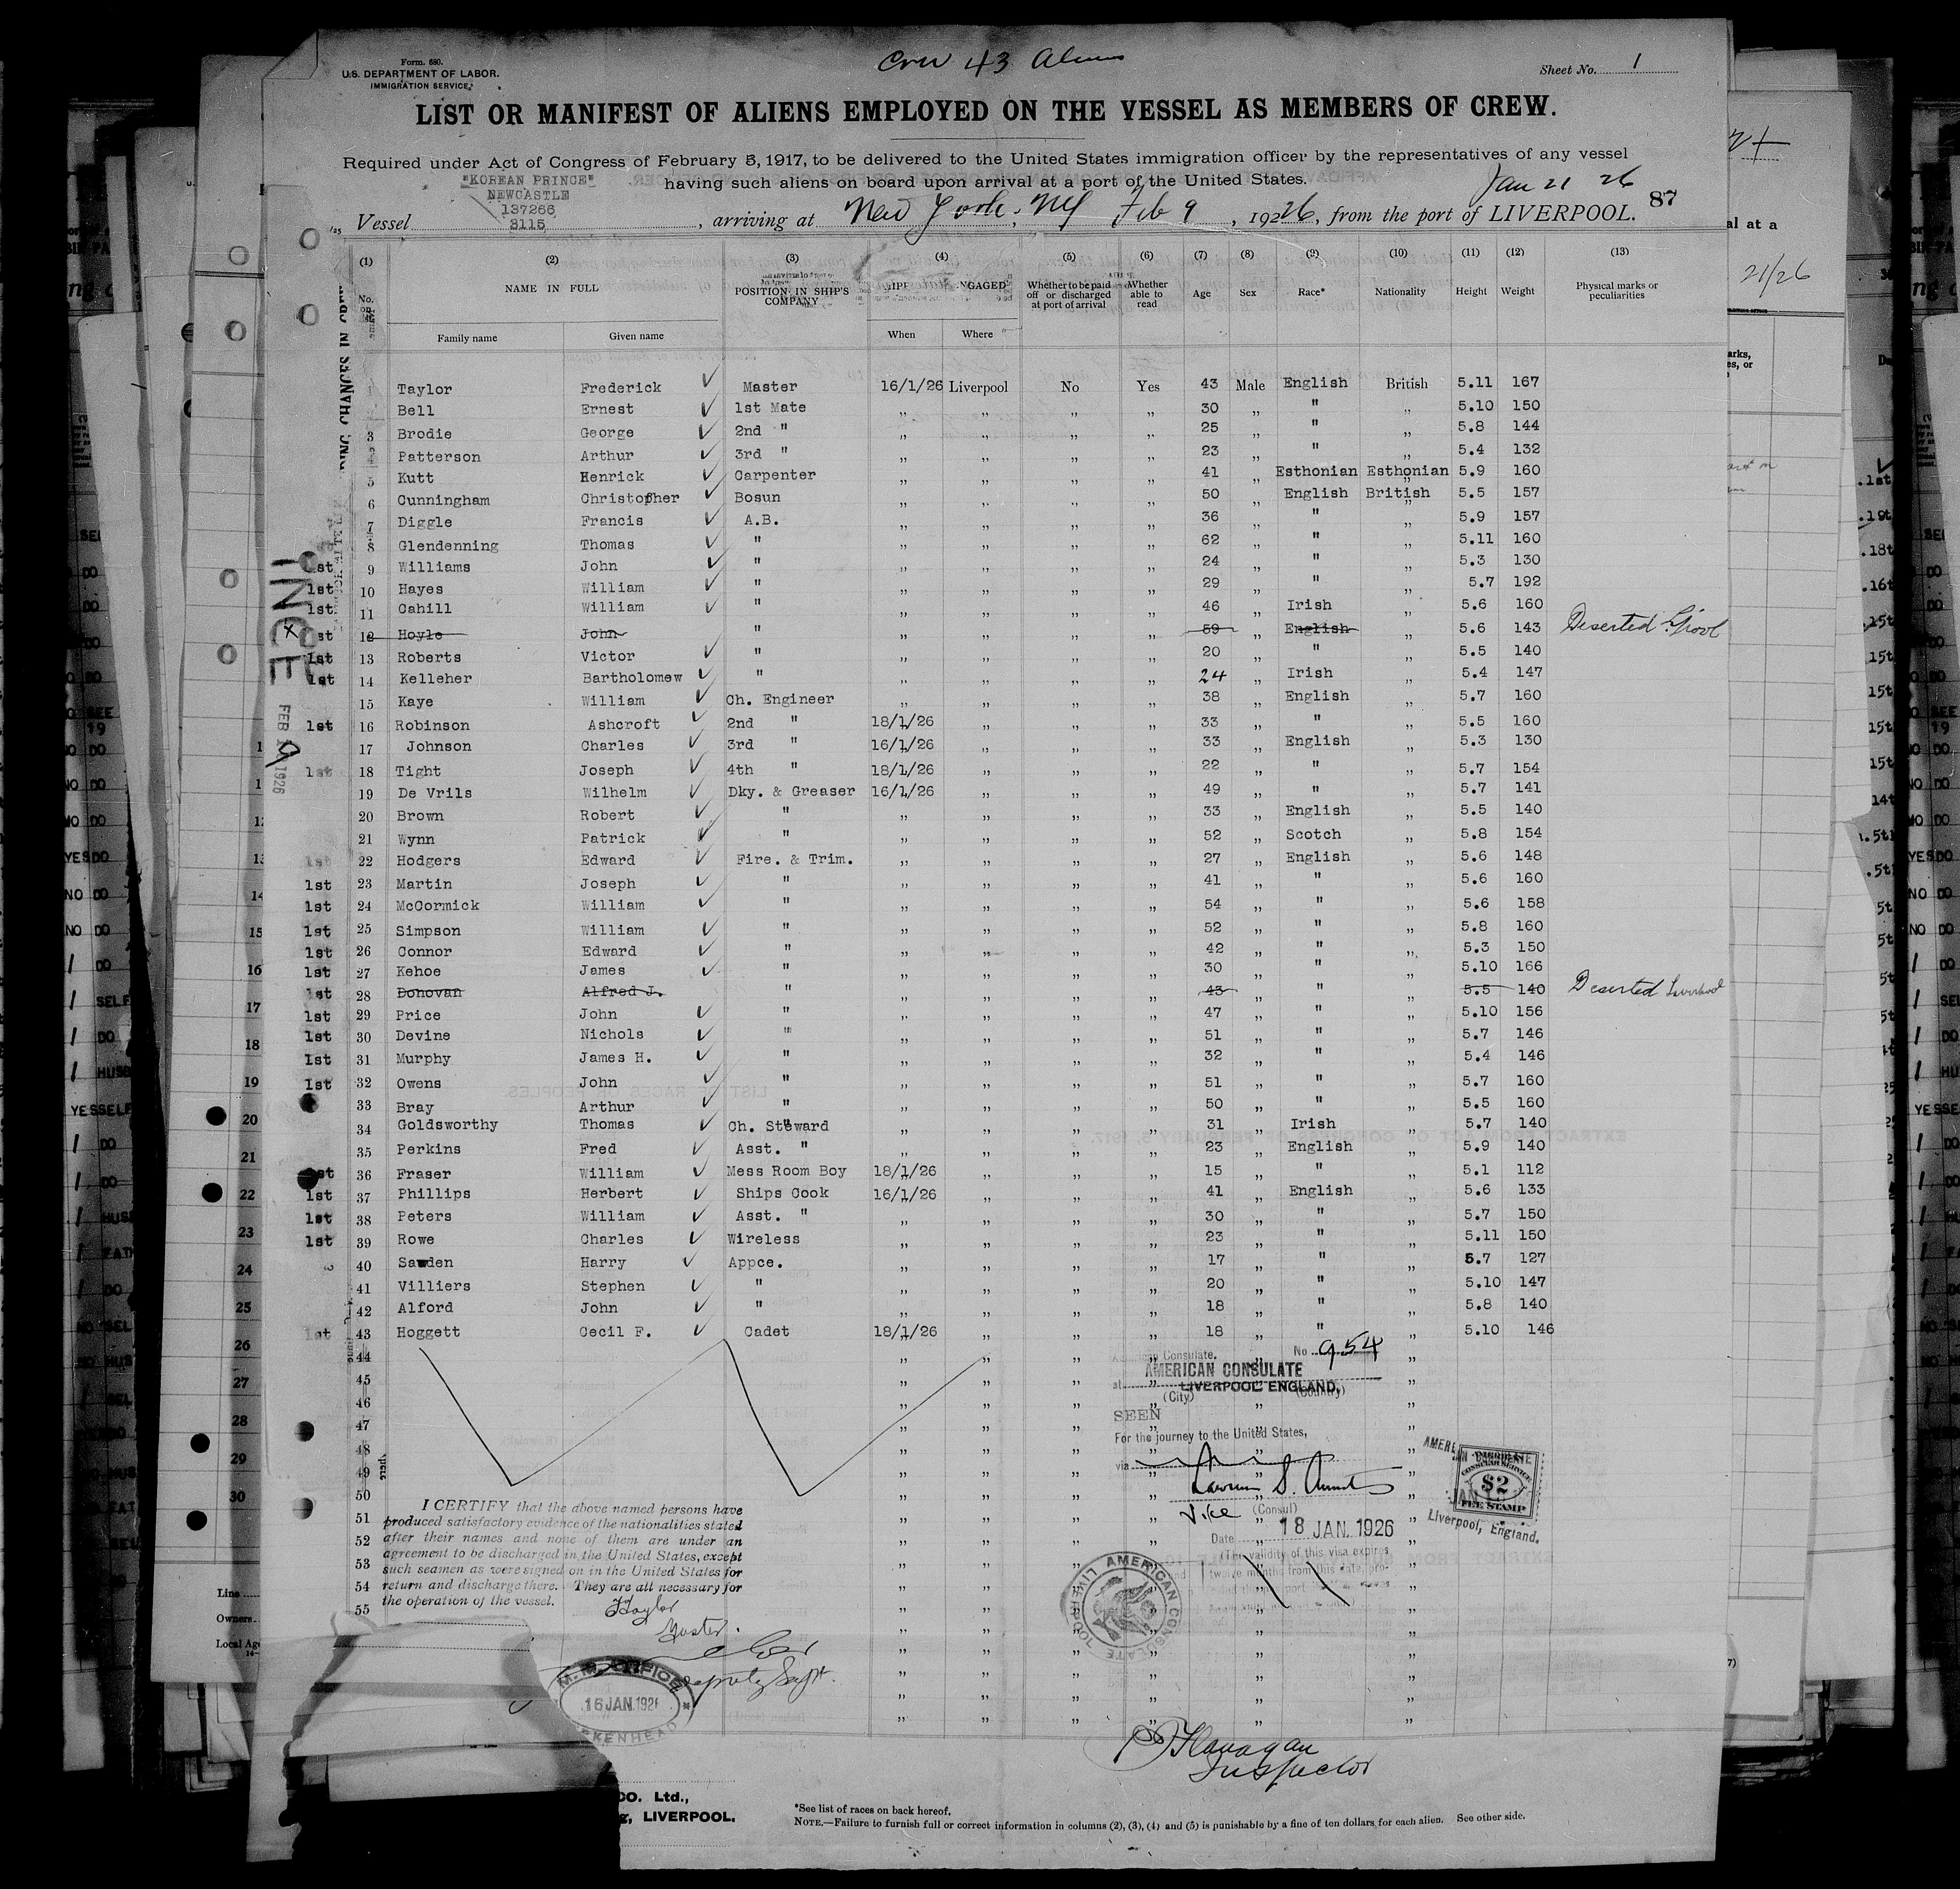 Crew 43 Aliens
Form. 680.
U.S. DEPARTMENT OF LABOR.
IMMIGRATION SERVICE.
Sheet No. 1
LIST OR MANIFEST OF ALIENS EMPLOYED ON THE VESSEL AS MEMBERS OF CREW.
Required under Act of Congress of February 5, 1917, to be delivered to the United States immigration officer by the representatives of any vessel
having such aliens on board upon arrival at a port of the United States.
"KOREAN PRINCE"
NEWCASTLE
137266
3115
Jan 21 26
87
Vessel , arriving at New York, NY Feb 9 , 1926, from the port of LIVERPOOL.
(1) (2) (3) (4) (5) (6) (7) (8) (9) (10) (11) (12) (13)
NAME IN FULL POSITION IN SHIP'S COMPANY Whether to be paid off or discharged at port of arrival Whether able to read Age Sex Race* Nationality Height Weight Physical marks or peculiarities
Family name Given name When Where
1 Taylor Frederick ✓ Master 16/1/26 Liverpool No Yes 43 Male English British 5.11 167
2 Bell Ernest ✓ 1st Mate „ „ „ „ 30 „ " „ 5.10 150
3 Brodie George ✓ 2nd " „ „ „ „ 25 „ " „ 5.8 144
4 Patterson Arthur ✓ 3rd " „ „ „ „ 23 „ " „ 5.4 132
5 Kutt Henrick ✓ Carpenter „ „ „ „ 41 „ Esthonian Esthonian 5.9 160
6 Cunningham Christopher ✓ Bosun „ „ „ „ 50 „ English British 5.5 157
7 Diggle Francis ✓ A.B. „ „ „ „ 36 „ " „ 5.9 157
8 Glendenning Thomas ✓ " „ „ „ „ 62 „ " „ 5.11 160
1st 9 Williams John ✓ " „ „ „ „ 24 „ " „ 5.3 130
1st 10 Hayes William ✓ " „ „ „ „ 29 „ " „ 5.7 192
1st 11 Cahill William ✓ " „ „ „ „ 46 „ Irish „ 5.6 160
x 1st 12 Hoyle John " „ „ „ „ 59 „ English „ 5.6 143 Deserted L'pool
1st 13 Roberts Victor ✓ " „ „ „ „ 20 „ " „ 5.5 140
1st 14 Kelleher Bartholomew ✓ " „ „ „ „ 24 „ Irish „ 5.4 147
15 Kaye William ✓ Ch. Engineer „ „ „ „ 38 „ English „ 5.7 160
1st 16 Robinson Ashcroft ✓ 2nd " 18/1/26 „ „ „ 33 „ " „ 5.5 160
17 Johnson Charles ✓ 3rd " 16/1/26 „ „ „ 33 „ English „ 5.3 130
1st 18 Tight Joseph ✓ 4th " 18/1/26 „ „ „ 22 „ " „ 5.7 154
19 De Vrils Wilhelm ✓ Dky. & Greaser 16/1/26 „ „ „ 49 „ " „ 5.7 141
20 Brown Robert ✓ " „ „ „ „ 33 „ English „ 5.5 140
21 Wynn Patrick ✓ " „ „ „ „ 52 „ Scotch „ 5.8 154
1st 22 Hodgers Edward ✓ Fire. & Trim. „ „ „ „ 27 „ English „ 5.6 148
1st 23 Martin Joseph ✓ " „ „ „ „ 41 „ " „ 5.6 160
1st 24 McCormick William ✓ " „ „ „ „ 54 „ " „ 5.6 158
1st 25 Simpson William ✓ " „ „ „ „ 52 „ " „ 5.8 160
1st 26 Connor Edward ✓ " „ „ „ „ 42 „ " „ 5.3 150
1st 27 Kehoe James ✓ " „ „ „ „ 30 „ " „ 5.10 166
1st 28 Donovan Alfred J. " „ „ „ „ 43 „ " „ 5.5 140 Deserted Liverpool
1st 29 Price John ✓ " „ „ „ „ 47 „ " „ 5.10 156
1st 30 Devine Nichols ✓ " „ „ „ „ 51 „ " „ 5.7 146
1st 31 Murphy James H. ✓ " „ „ „ „ 32 „ " „ 5.4 146
1st 32 Owens John ✓ " „ „ „ „ 51 „ " „ 5.7 160
33 Bray Arthur ✓ " „ „ „ „ 50 „ " „ 5.5 160
34 Goldsworthy Thomas ✓ Ch. Steward „ „ „ „ 31 „ Irish „ 5.7 140
35 Perkins Fred ✓ Asst. " „ „ „ „ 23 „ English „ 5.9 140
1st 36 Fraser William ✓ Mess Room Boy 18/1/26 „ „ „ 15 „ " „ 5.1 112
1st 37 Phillips Herbert ✓ Ships Cook 16/1/26 „ „ „ 41 „ English „ 5.6 133
1st 38 Peters William ✓ Asst. " „ „ „ „ 30 „ " „ 5.7 150
1st 39 Rowe Charles ✓ Wireless „ „ „ „ 23 „ " „ 5.11 150
40 Sawden Harry ✓ Appce. „ „ „ „ 17 „ " „ 5.7 127
41 Villiers Stephen ✓ " „ „ „ „ 20 „ " „ 5.10 147
42 Alford John ✓ " „ „ „ „ 18 „ " „ 5.8 140
1st 43 Hoggett Cecil F. ✓ Cadet 18/1/26 „ „ „ 18 „ " „ 5.10 146
44
45
46
47
48
49
50
51
52
53
54
55
FEB 1926
American Consulate. No 954
AMERICAN CONSULATE
at LIVERPOOL ENGLAND.
(City) (Country)
SEEN
For the journey to the United States,
via
Vice (Consul)
Date 18 JAN. 1926
(The validity of this visa expires
twelve months from this date, pro-
AMERICAN CONSULATE LIVERPOOL
CONSULAR SERVICE
$2
FEE STAMP
Liverpool, England.
I CERTIFY that the above named persons have
produced satisfactory evidence of the nationalities stated
after their names and none of them are under an
agreement to be discharged in the United States, except
such seamen as were signed on in the United States for
return and discharge there. They are all necessary for
the operation of the vessel.
FTaylor
Master.
Deputy Supt.
M.M. OFFICE
16 JAN. 1926
BIRKENHEAD
Flanagan
Inspector
CO. Ltd.,
LIVERPOOL.
*See list of races on back hereof.
NOTE.—Failure to furnish full or correct information in columns (2), (3), (4) and (5) is punishable by a fine of ten dollars for each alien. See other side.